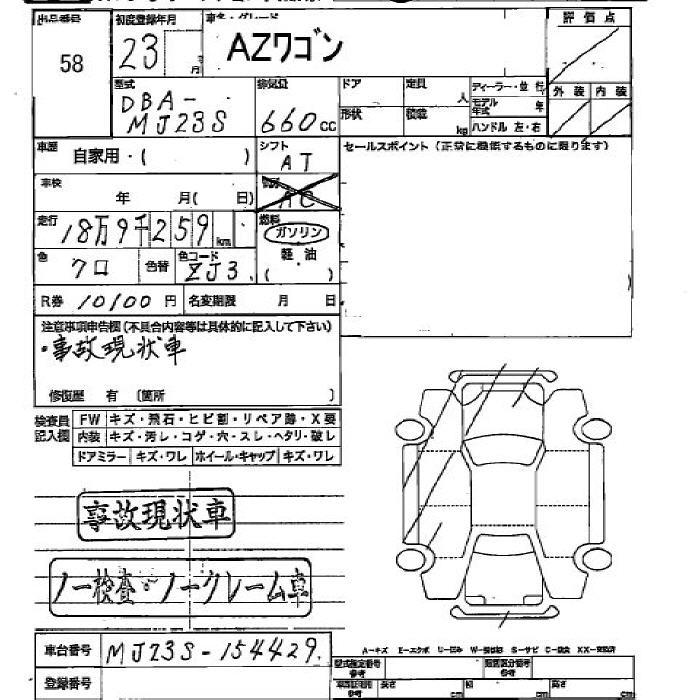 出品番号 初度登録年月 車名・グレード 評価点
58 23 月 AZワゴン
型式 排気量 ドア 定員 人 ディーラー・並行 外装 内装
DBA- 660cc モデル年式 年
MJ23S 形状 積載 kg ハンドル 左・右
車歴 自家用・( ) シフト AT セールスポイント(正常に機能するものに限ります)
車検 年 月( 日) AC
走行 18万9千259km 燃料 ガソリン
色 クロ 色替 色コード ZJ3. 軽油 ( )
R券 10100円 名変期限 月 日
注意事項申告欄(不具合内容等は具体的に記入して下さい)
・事故現状車
修復歴 有 〔箇所 〕
検査員記入欄 FW キズ・飛石・ヒビ割・リペア跡・X要
内装 キズ・汚レ・コゲ・穴・スレ・ヘタリ・破レ
ドアミラー キズ・ワレ ホイール・キャップ キズ・ワレ
事故現状車
ノー検査・ノークレーム車
車台番号 MJ23S-154429.
A-キズ E-エクボ U-凹み W-補修跡 S-サビ C-腐食 XX-交換済
型式指定番号 類別区分番号
登録番号 長さ cm 幅 cm 高さ cm